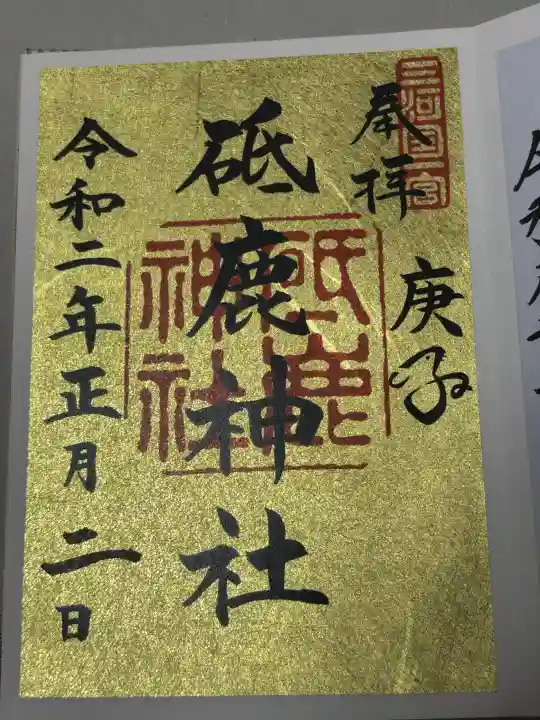 三河国一宮
奉拝
庚子
砥鹿神社
砥鹿
神社
令和二年正月二日